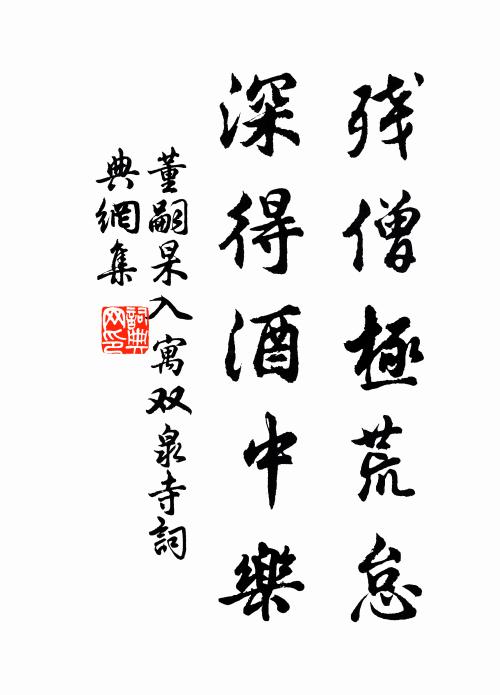 残僧極荒怠
深得酒中樂
董嗣杲入寓双泉寺詞
典網集
詞典网印